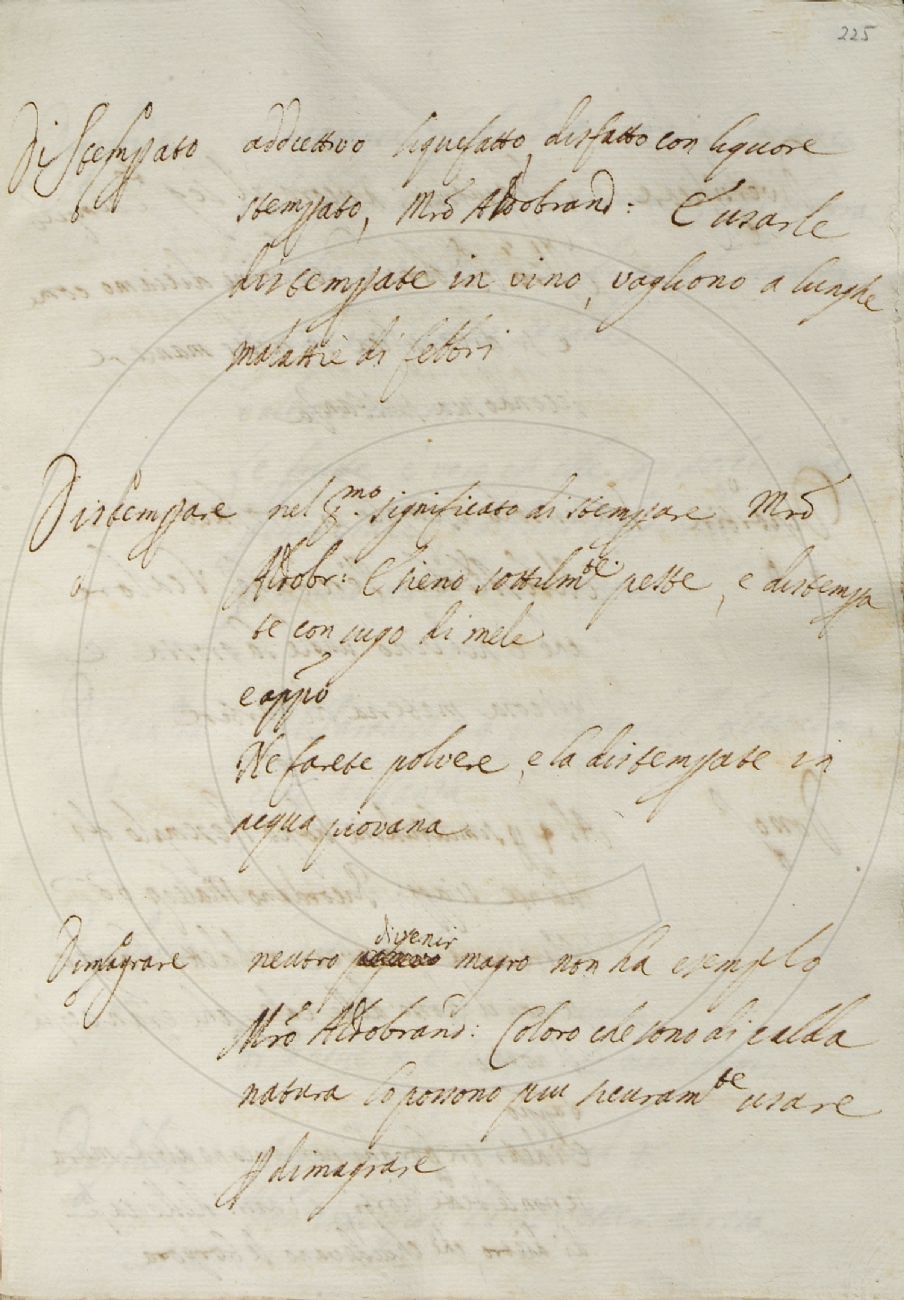 225
Distemperato addiettivo liquefatto, disfatto con liquore
stemperato, Mrō Aldobrand: E usarle
distemperate in vino, vagliono a lunghe
malattie di febbri
Distemperare nel pmo. significato di stemperare Mrō
Aldobr: E sieno sottilmte peste, e distempera
te con sugo di mele
e appō
Ne farete polvere, e la distemperate in
acqua piovana
Dimagrare neutro divenir magro non ha esemplo
Mrō Aldobrand: Coloro che sono di calda
natura lo possono piu sicuramte usare
p dimagrare